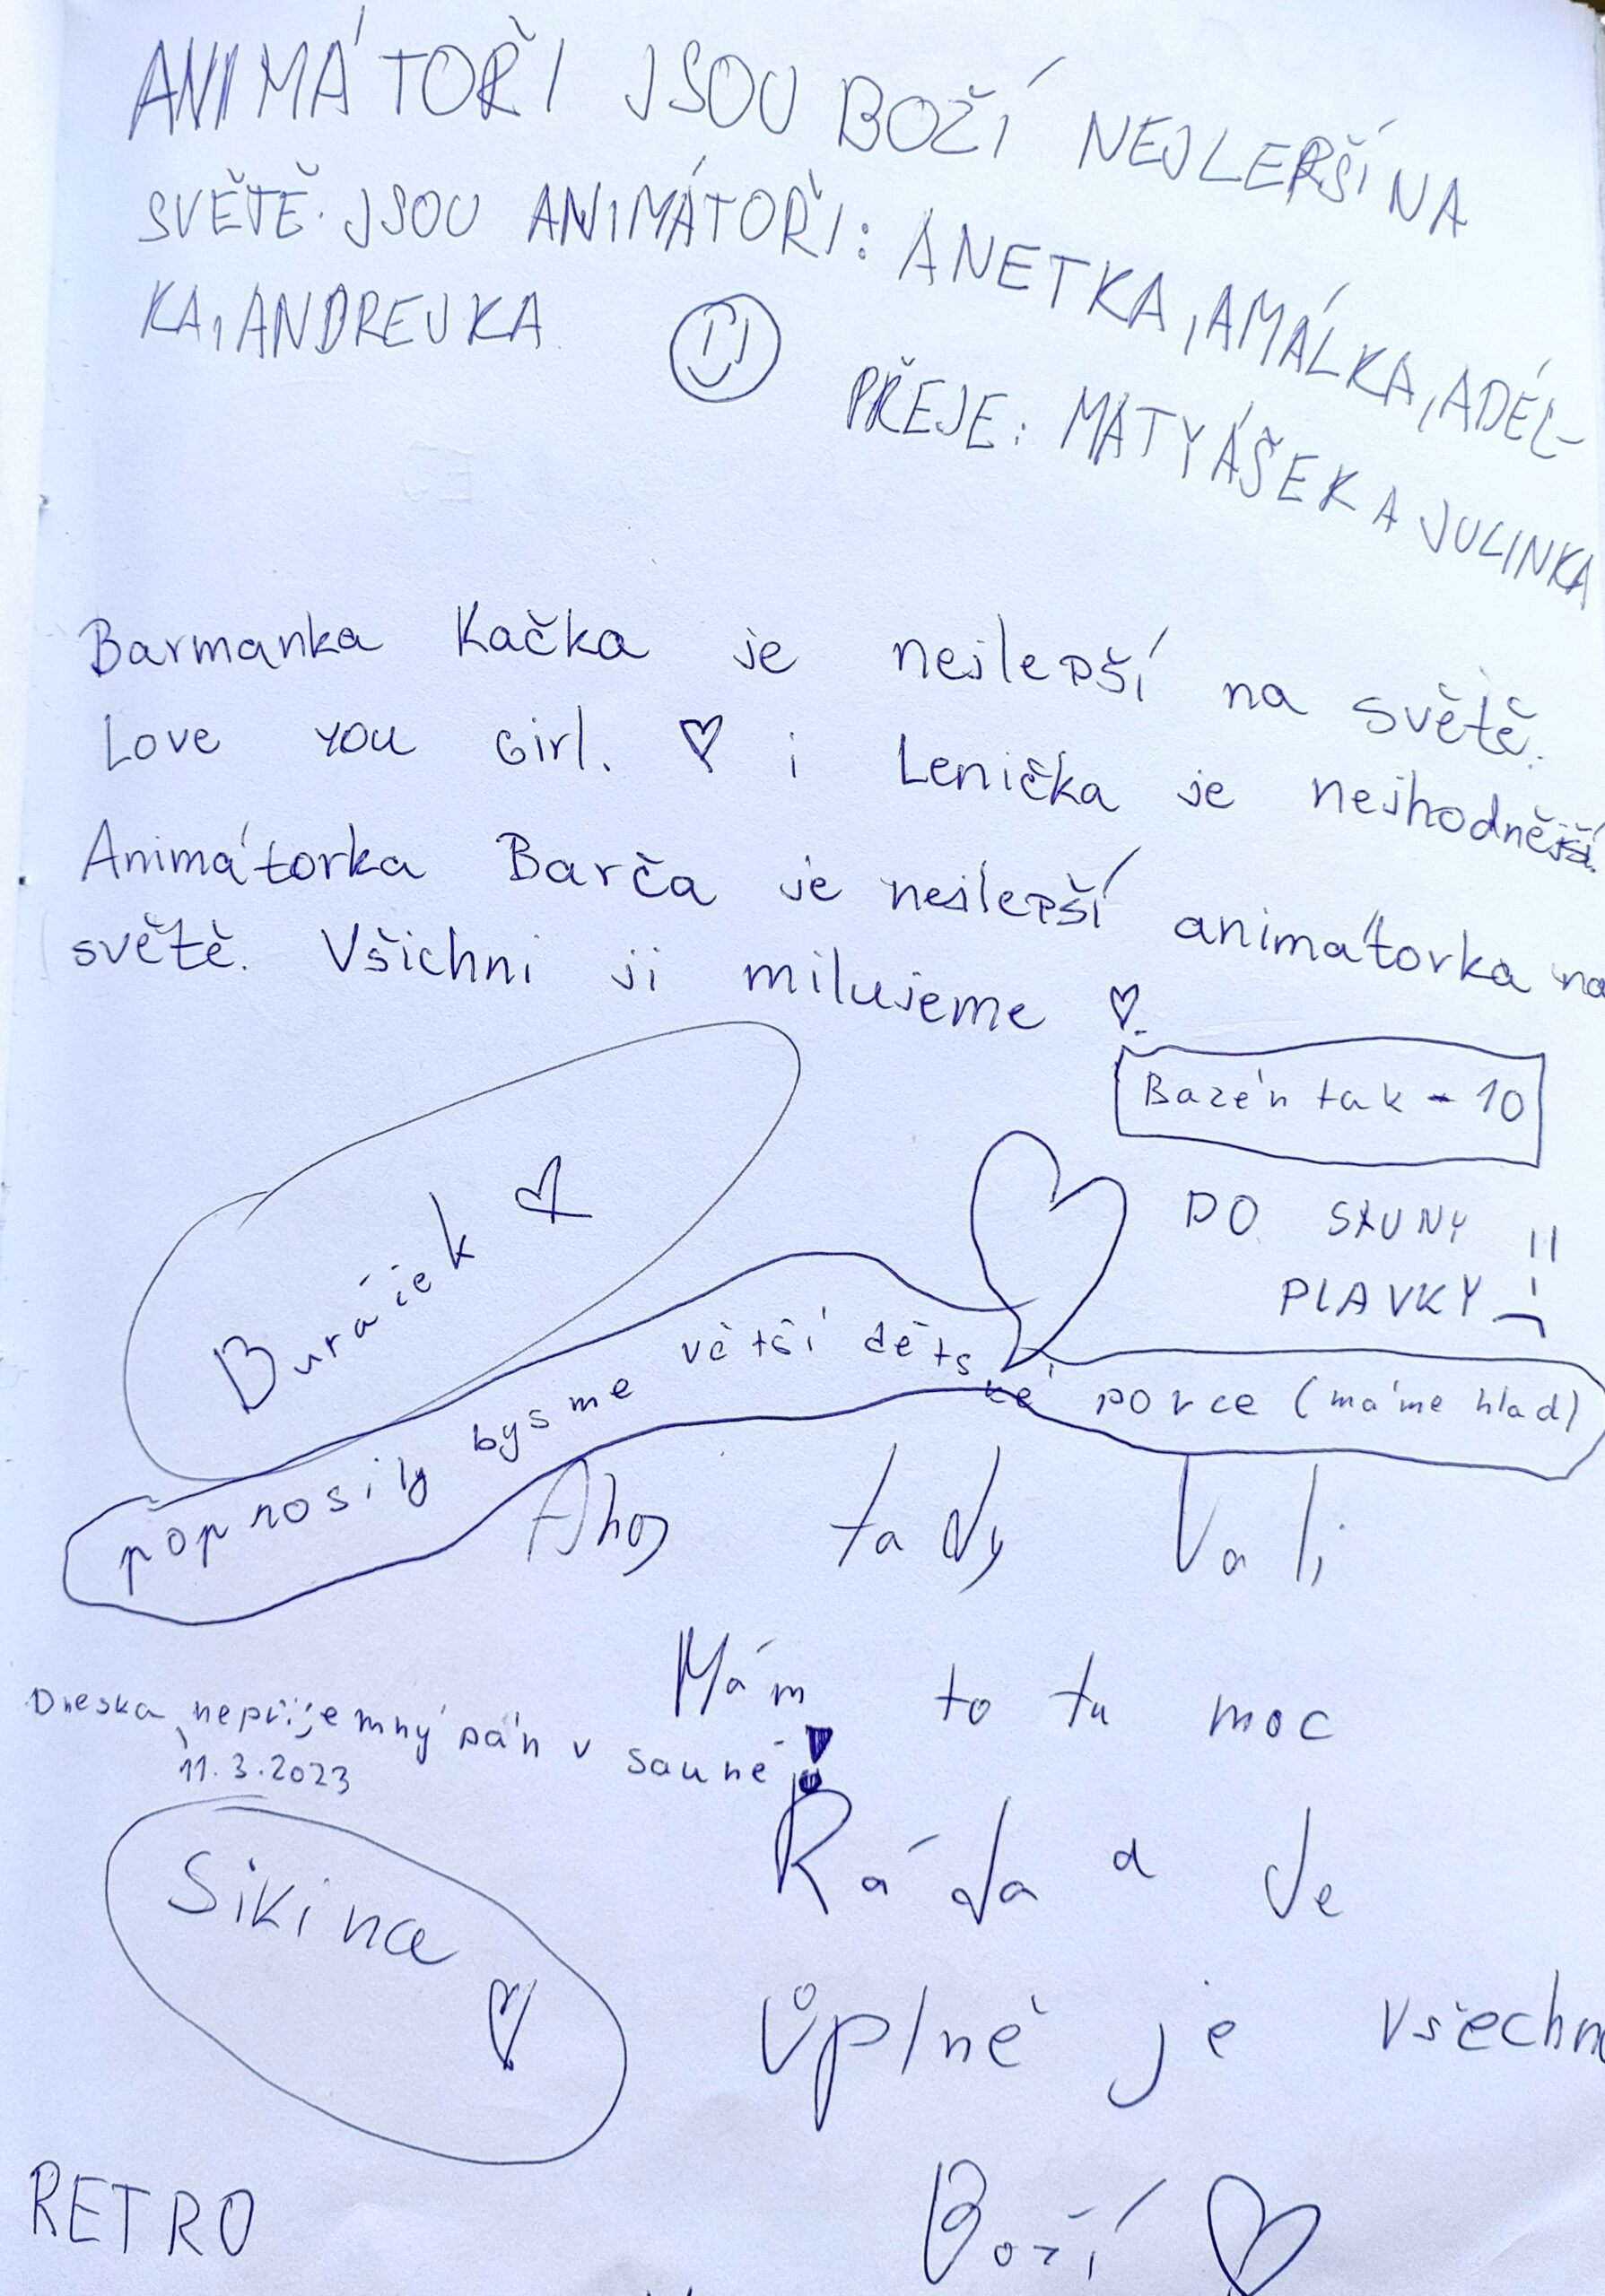 ANIMÁTOŘI JSOU BOŽÍ NEJLEPŠÍ NA
SVĚTĚ JSOU ANIMÁTOŘI: ANETKA, AMÁLKA, ADÉL-
KA, ANDREJKA
PŘEJE: MATYÁŠEK A JULINKA
Barmanka Kačka je nejlepší na světě.
Love you Girl. ♡ i Lenička je nejhodnější.
Animátorka Barča je nejlepší animátorka na
světě. Všichni ji milujeme ♡.
Bazén tak - 10
DO SAUNY
PLAVKY
Buráček ♡
poprosily bysme větší dětské porce (máme hlad)
Ahoj tady Vali
Mám to tu moc
Dneska nepříjemný pán v sauně!
11.3.2023
Ráda a Je
Sikina ♡
Úplně je všechn
RETRO
Boží ♡